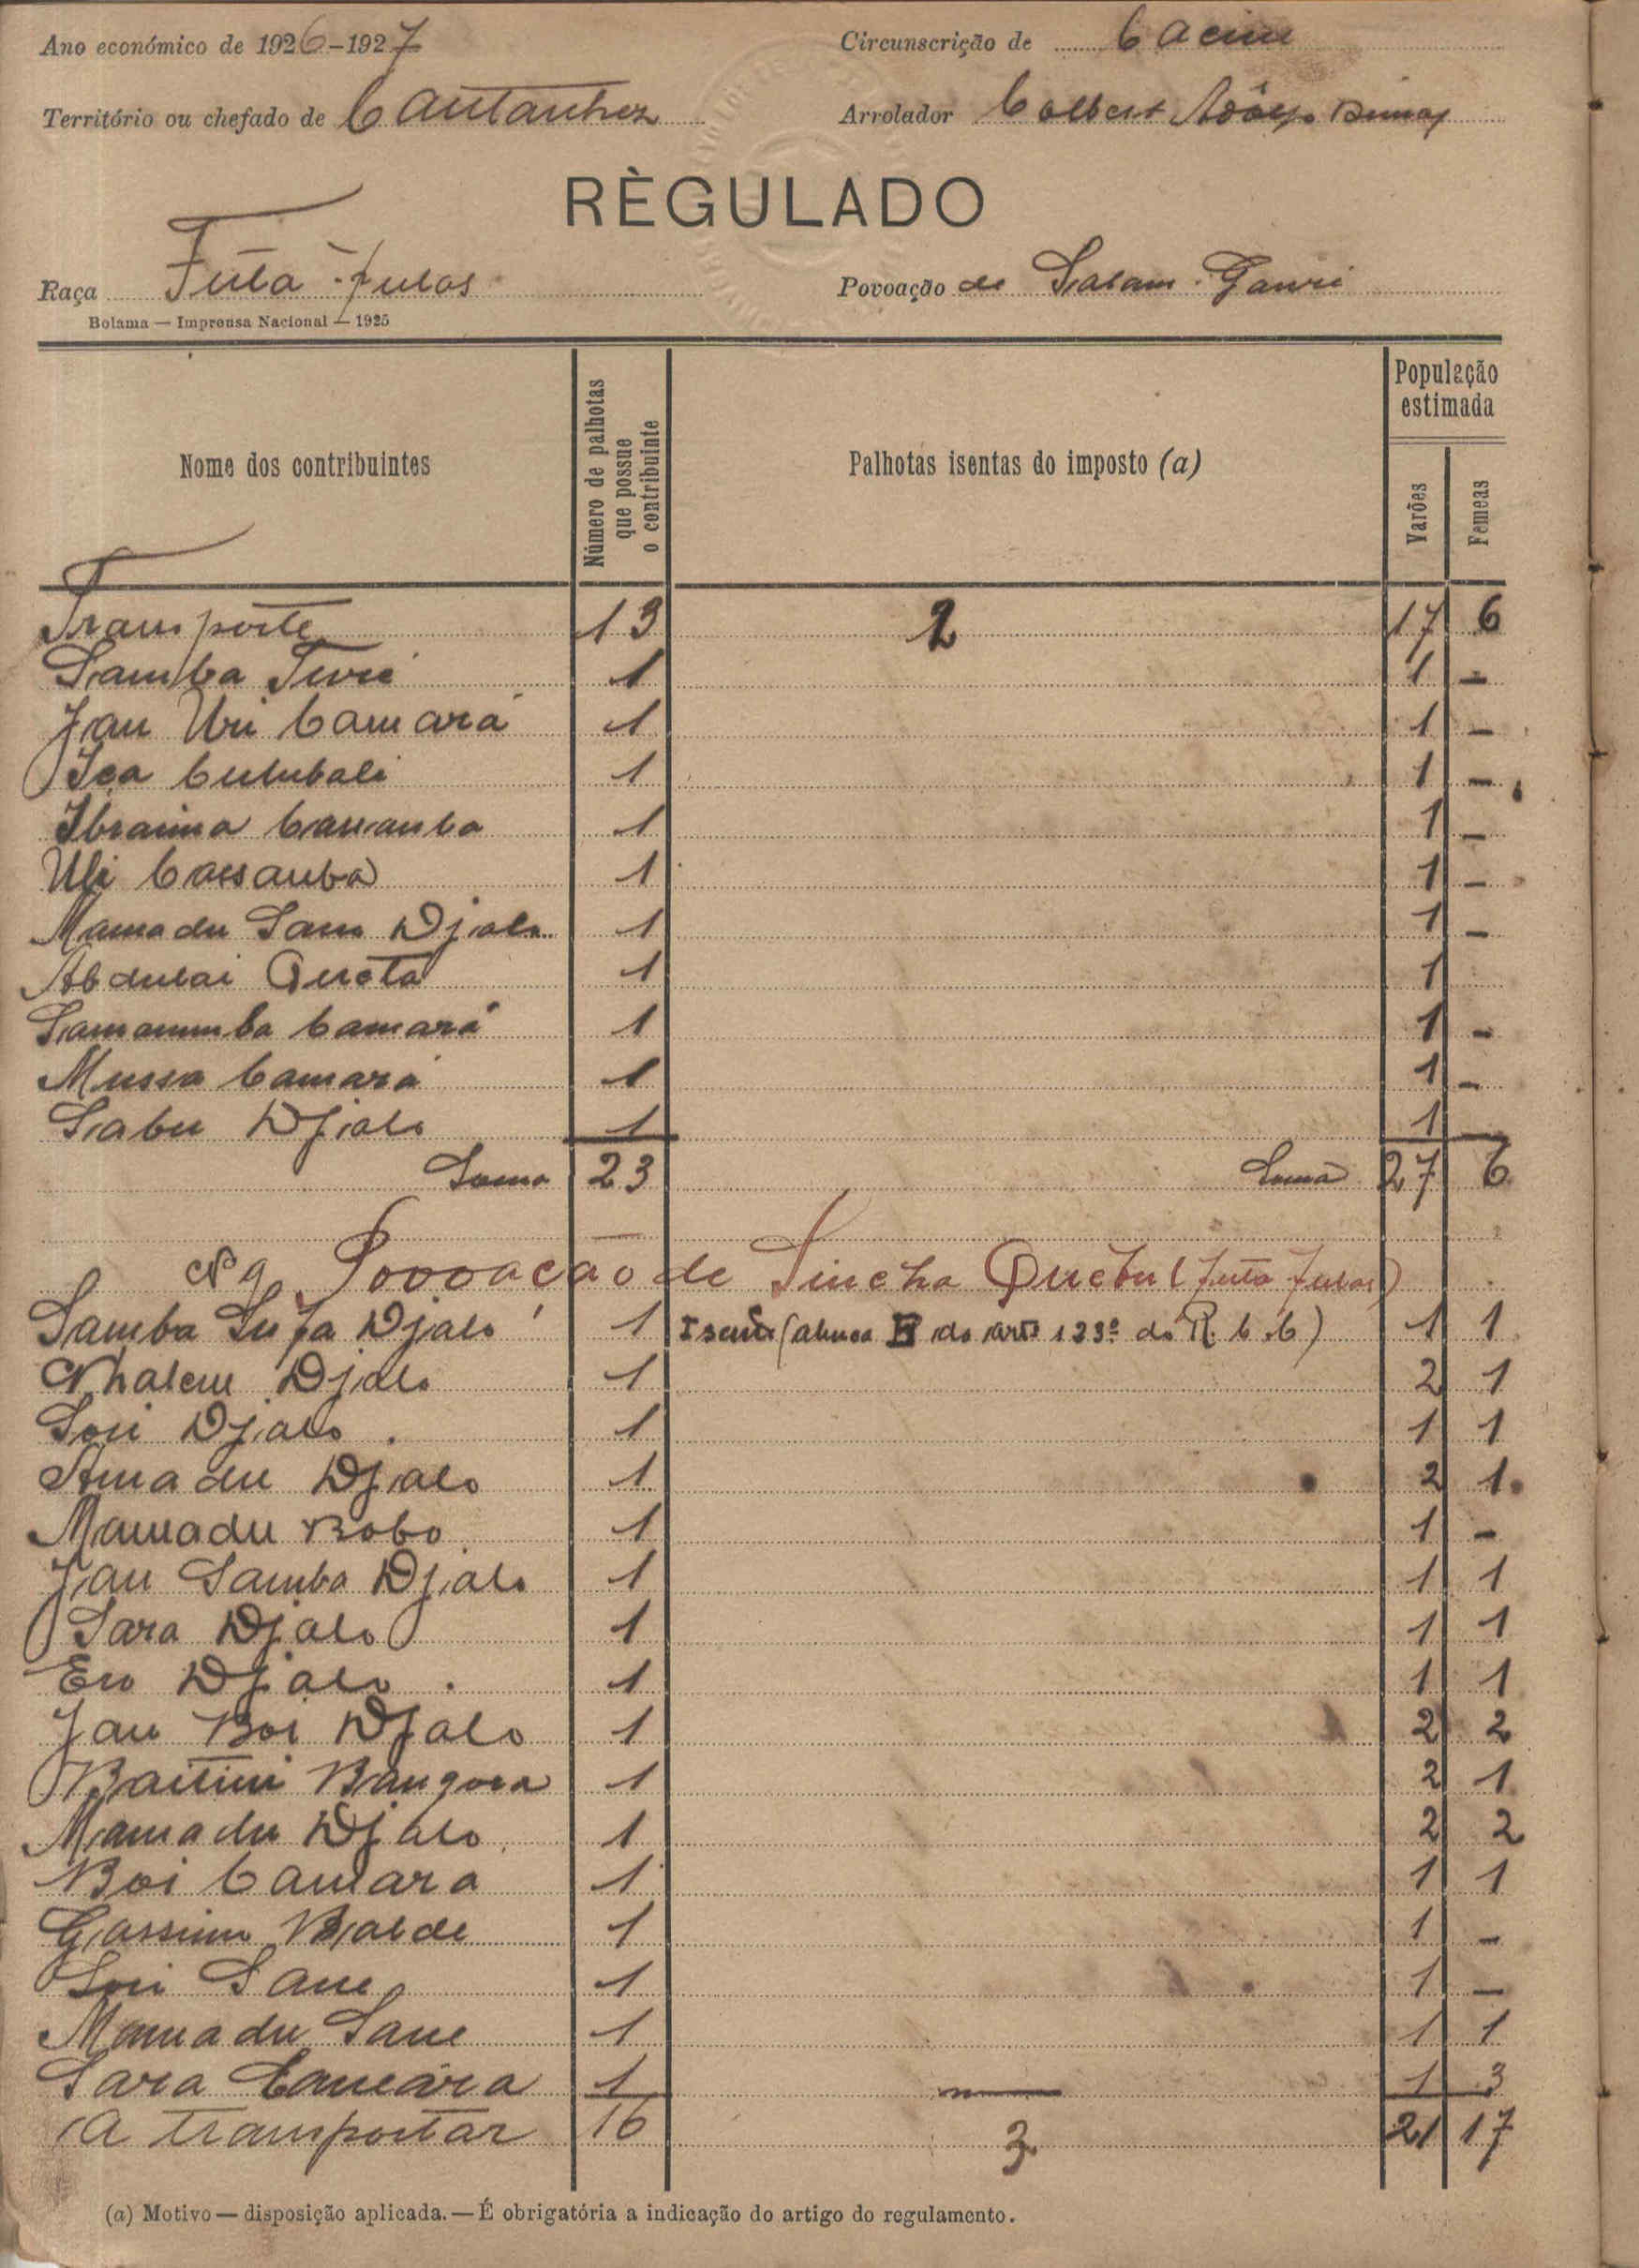 Ano económico de 1926-1927 Circunscrição de Cacine
Território ou chefado de Cantanhez Arrolador Colbert
RÈGULADO
Raça Futa-fulas Povoação de Salam-Gauri
Bolama — Imprensa Nacional — 1925
Nome dos contribuintes Número de palhotas que possue o contribuinte Palhotas isentas do imposto (a) População estimada Varões Femeas
Transporte 13 2 17 6
Samba Turé 1 1 -
Jau Uri Camará 1 1 -
Iça Culubali 1 1 -
Ibraima Cassamba 1 1 -
Uli Cassamba 1 1 -
Mamadu Sam Djalo 1 1 -
Abdulai Queta 1 1
Samanumba Camará 1 1 -
Mussa Camará 1 1 -
Sabu Djalo 1 1
Soma 23 Soma 27 6
Nº 9 Povoação de Sincha Quebu (futa fulas)
Samba Sufa Djaló 1 Isento (alinea E do artº 123º do R. C. C) 1 1
Nhaleu Djalo 1 2 1
Sori Djalo 1 1 1
Amadu Djalo 1 2 1
Mamadu Bobo 1 1 -
Jau Samba Djalo 1 1 1
Sara Djalo 1 1 1
Ero Djalo 1 1 1
Jau Boi Djalo 1 2 2
Bangora 1 2 1
Mamadu Djalo 1 2 2
Boi Camara 1 1 1
Gassimo Balde 1 1 -
Sori Sane 1 1 -
Mamadu Sane 1 1 1
Sara Camára 1 1 3
A transportar 16 3 21 17
(a) Motivo — disposição aplicada. — É obrigatória a indicação do artigo do regulamento.